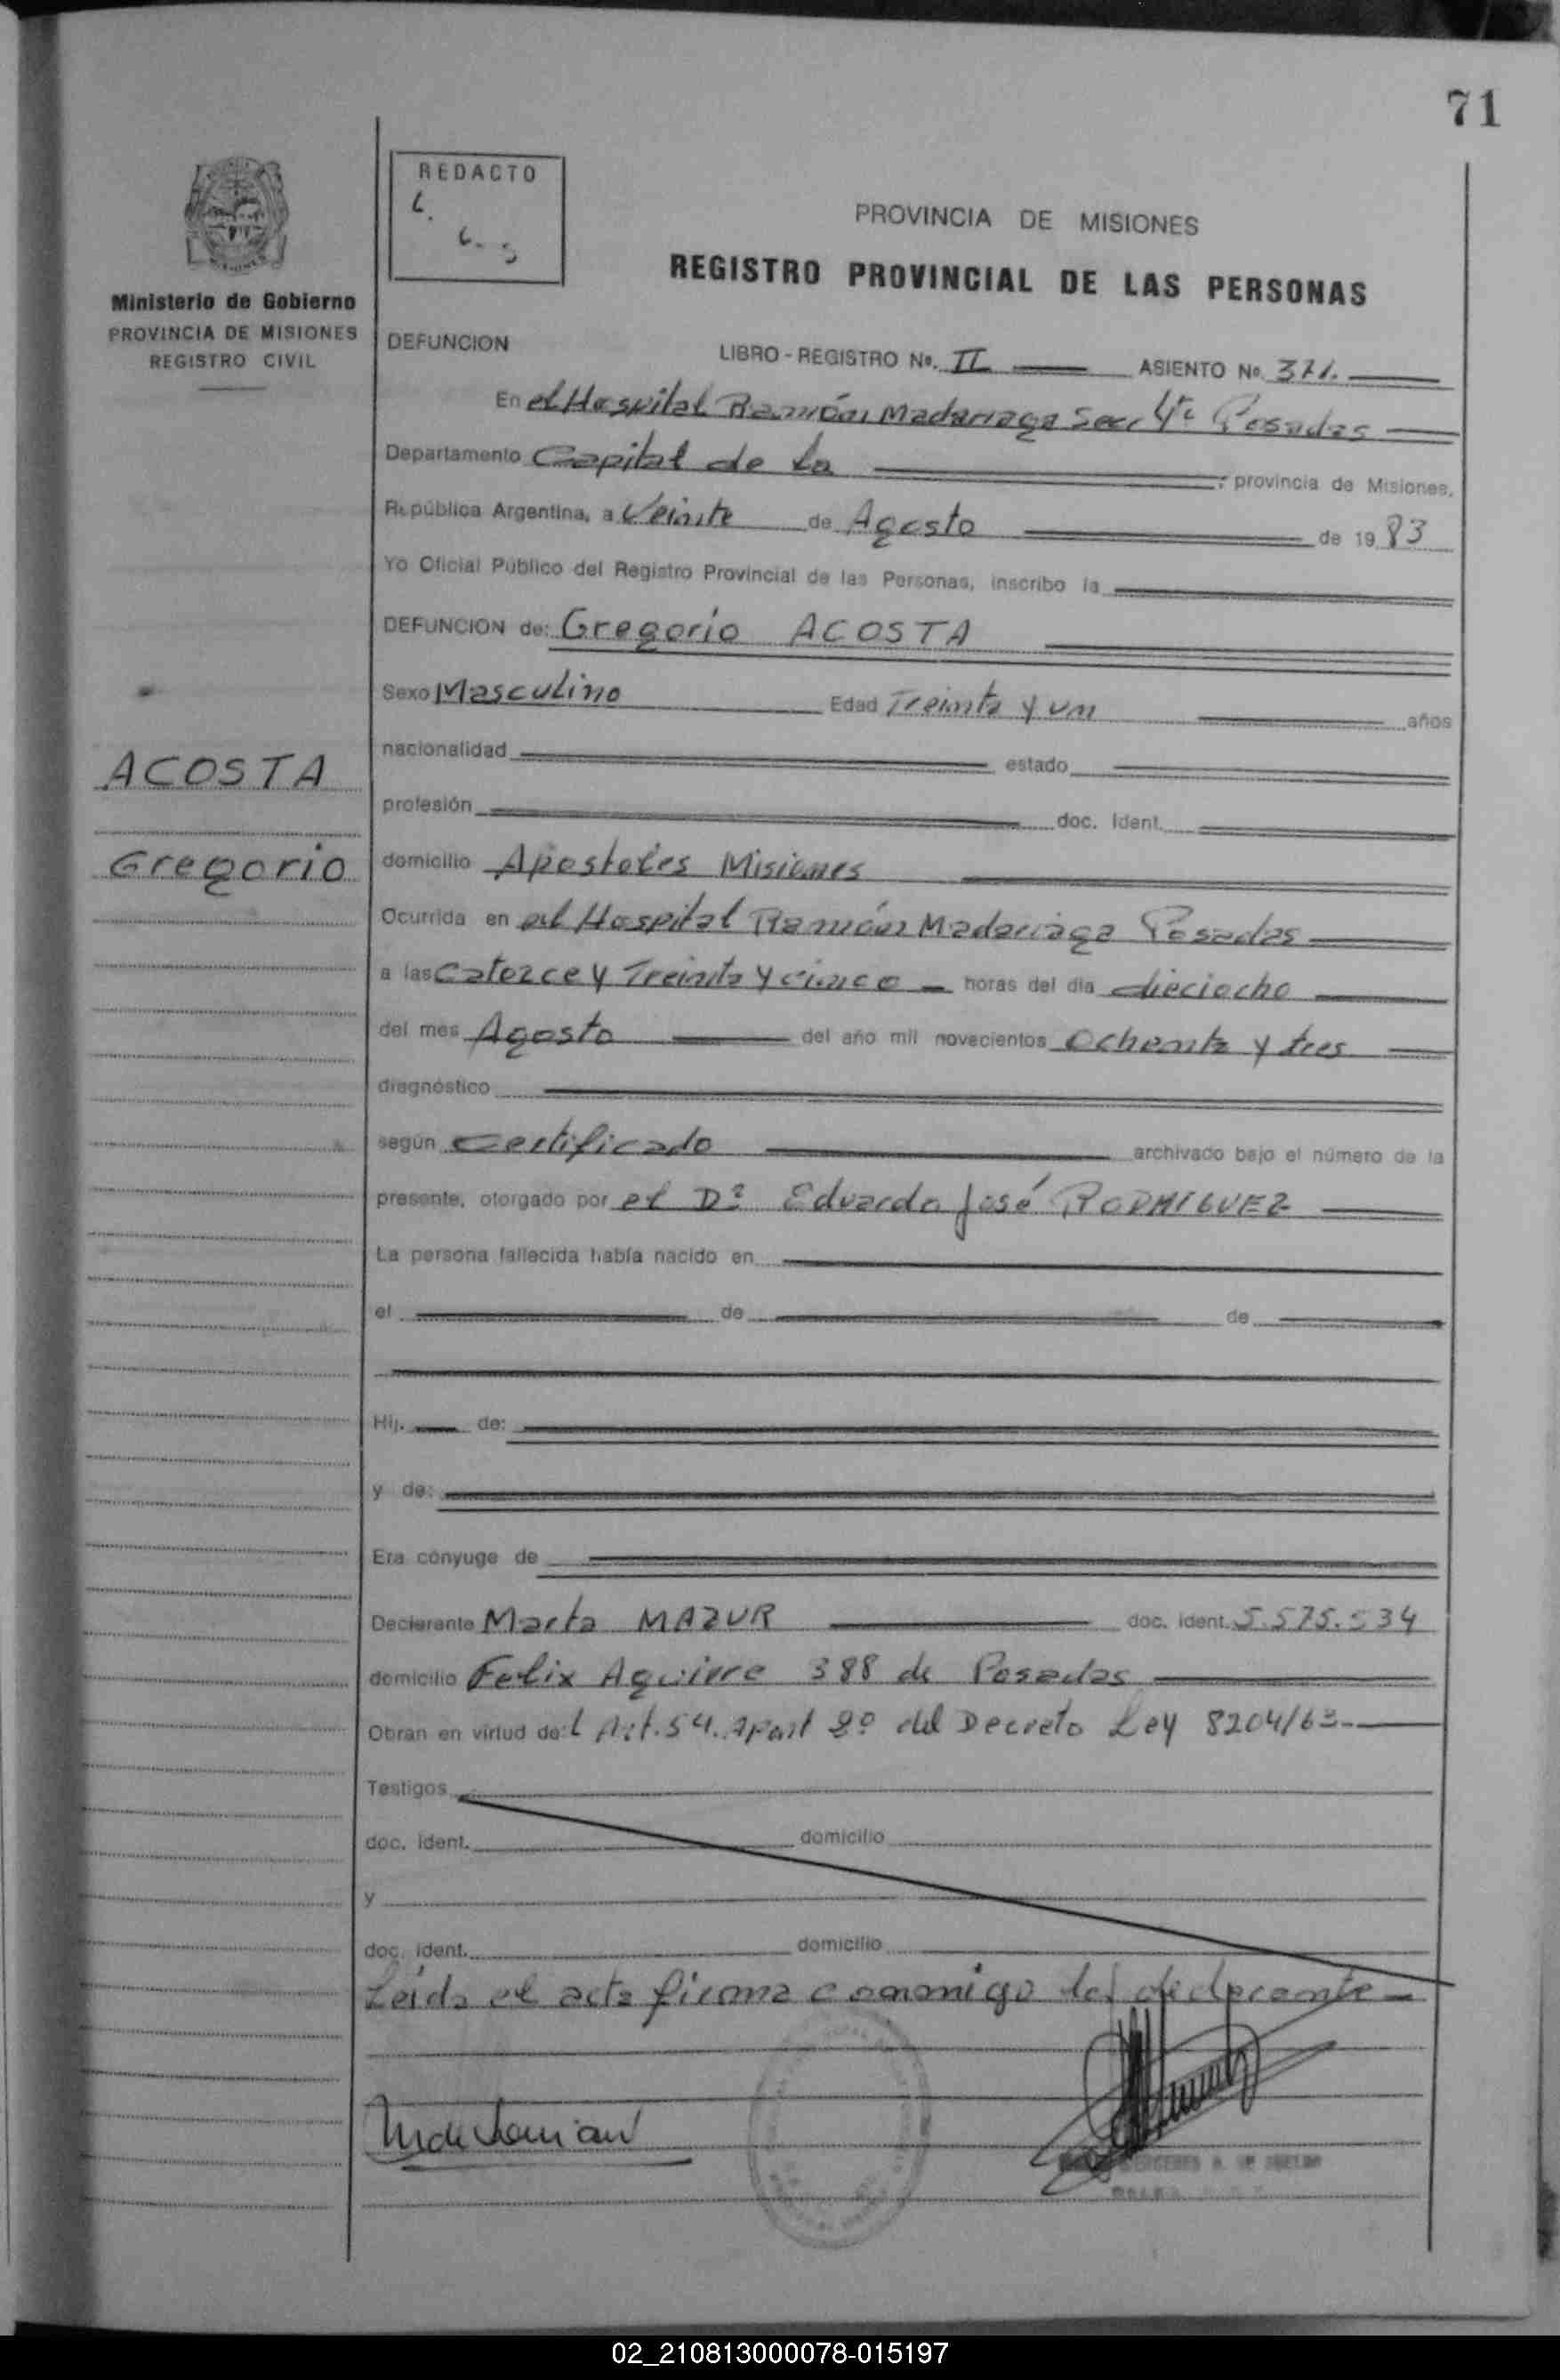 71
REDACTO
PROVINCIA DE MISIONES
REGISTRO PROVINCIAL DE LAS PERSONAS
Ministerio de Gobierno
PROVINCIA DE MISIONES
REGISTRO CIVIL
DEFUNCION LIBRO - REGISTRO No. II ASIENTO No. 371.
En el Hospital Ramón Madariaga Secc 4ta Posadas
Departamento Capital de la provincia de Misiones,
República Argentina, a Veinte de Agosto de 19 83
Yo Oficial Público del Registro Provincial de las Personas, inscribo la
DEFUNCION de: Gregorio ACOSTA
Sexo Masculino Edad Treinta y un años
nacionalidad estado
ACOSTA
profesión doc. ident.
Gregorio
domicilio Apostoles Misiones
Ocurrida en el Hospital Ramón Madariaga Posadas
a las Catorce y Treinta y cinco horas del día dieciocho
del mes Agosto del año mil novecientos Ochenta y tres
diagnóstico
según Certificado archivado bajo el número de la
presente, otorgado por el Dr Eduardo José RODRIGUEZ
La persona fallecida había nacido en
el de de
Hij. de:
y de:
Era cónyuge de
Declarante Marta MAZUR doc. ident. 5.575.534
domicilio Felix Aguirre 388 de Posadas
Obran en virtud de: l Art. 54. Apart 2º del Decreto Ley 8204/63
Testigos
doc. ident. domicilio
y
doc. ident. domicilio
Leída el acta firma conmigo la declarante
02_210813000078-015197